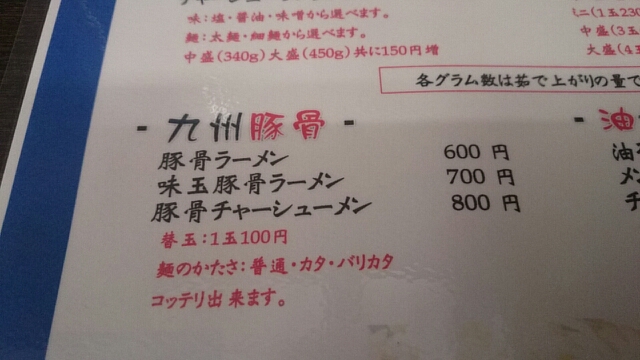 味：塩・醤油・味噌から選べます。
麺：太麺・細麺から選べます。
中盛(340g)大盛(450g)共に150円増
ミニ(1玉230
中盛(3玉
大盛(4玉
各グラム数は茹で上がりの量で
- 九州豚骨 -
豚骨ラーメン 600 円
味玉豚骨ラーメン 700 円
豚骨チャーシューメン 800 円
替玉：1玉100円
麺のかたさ：普通・カタ・バリカタ
コッテリ出来ます。
- 油
油
メン
チ